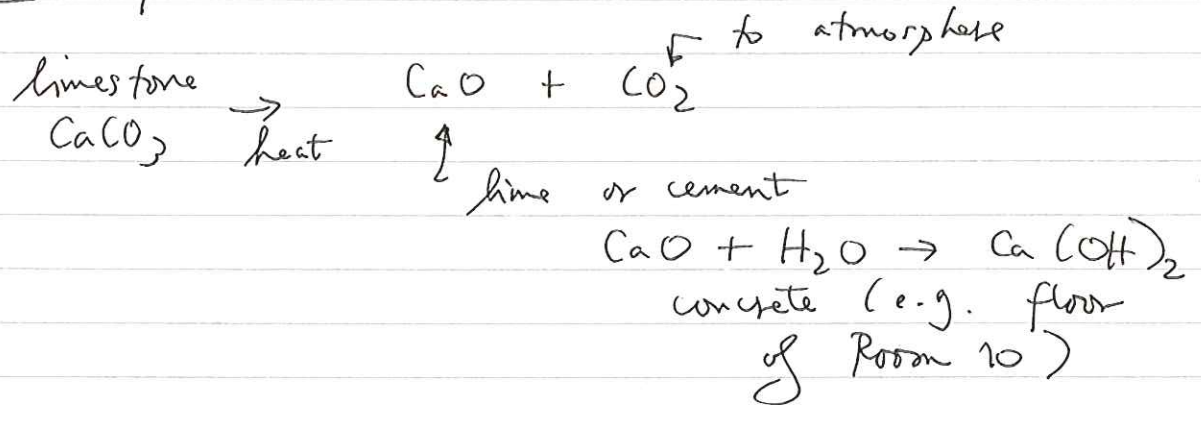 to atmosphere
limestone CaO + CO₂
CaCO₃ → heat
lime or cement
CaO + H₂O → Ca(OH)₂
concrete (e.g. floor
of Room 10)